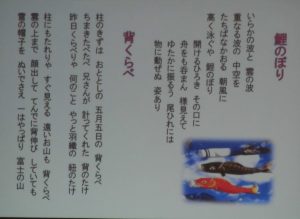 鯉のぼり
いらかの波と 雲の波
重なる波の 中空を
たちばなかおる 朝風に
高く泳ぐや 鯉のぼり
開けるひろき その口に
舟をも呑まん 様見えて
ゆたかに振るう 尾ひれには
物に動ぜぬ 姿あり
背くらべ
柱のきずは おととしの 五月五日の 背くらべ
ちまきたべたべ 兄さんが 計ってくれた 背のたけ
昨日くらべりゃ 何のこと やっと羽織の 紐のたけ
柱にもたれりゃ すぐ見える 遠いお山も 背くらべ
雲の上まで 顔出して てんでに背伸び していても
雪の帽子を ぬいでさえ 一はやっぱり 富士の山